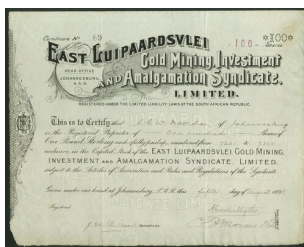 Certificate No 89
*100*
-100- Shares
EAST LUIPAARDSVLEI
Gold Mining, Investment
HEAD OFFICE
JOHANNESBURG,
AND Amalgamation Syndicate,
LIMITED.
REGISTERED UNDER THE LIMITED LIABILITY LAWS OF THE SOUTH AFRICAN REPUBLIC.
This is to Certify that of Johannesburg
is the Registered Proprietor of One hundred Shares of
One Pound Sterling each fully paid up, numbered from to
inclusive, in the Capital Stock of the EAST LUIPAARDSVLEI GOLD MINING,
INVESTMENT AND AMALGAMATION SYNDICATE, LIMITED,
subject to the Articles of Association and Rules and Regulations of the Syndicate.
Given under our hand at Johannesburg, this day of August